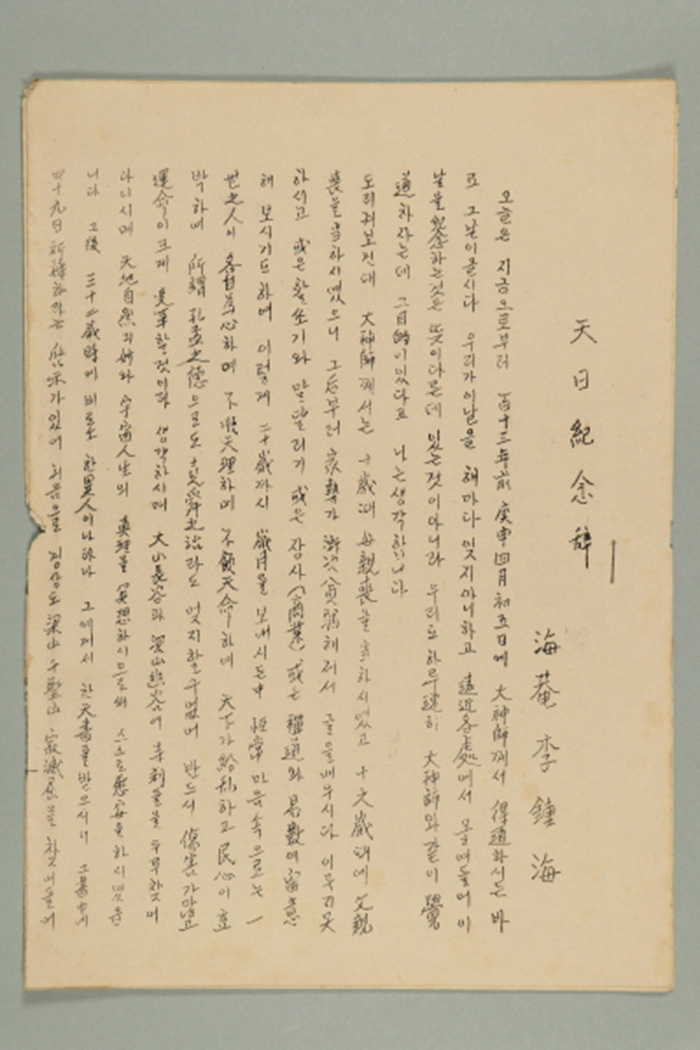 天日紀念辞
海菴 李鍾海
오늘은 지금으로부터 百十三年前 庚申四月初五日에 大神師께서 得道하시든 바
로 그날이올시다 우리가이날을 해마다 잇지아니하고 遠近各處에서 몰여들어 이
날을 紀念하는것은 뜻이다른데 있는것이아니라 우리도 하루速히 大神師와같이 覺
道하자는데 그目的이있다고 나는생각합니다
도리켜보건대 大神師께서는 十歲때 母親喪을 當하시였고 十六歲때에 父親
喪을 當하시였으니 그后부터 家勢가 漸次貧弱해저서 글을배우시다 이루지못
하시고 或은 활쏘기와 말달리기 或은 장사(商業) 或은 道와 易數에 留意
해 보시기도하며 이렇게 二十歲까지 歲月을 보내시든中 恒常 마음속으로는
世上人이 各自為心하며 不順天理하며 不顧天命하며 天下가 紛乱하고 民心이 효
박하며 所謂 孔孟之德으로도 堯舜之治라도 엇지할수없으며 반드시 傷害가많고
運命이크게 變革할것이라 생각하시며 大山長谷과 에 寺刹을 두루찾어
다니시며 天地自然의 와 宇宙人生의 真理를 冥想하시므로써 스스로 慰安을 하시였든
니다 그後 三十 歲時에 비로소 한異人이나타나 그에게서 한天書를받으시니 그書中에
四十九日 祈禱하라는 가있어 처음으로 경상도 梁山 千聖山 寂滅窟을 찾어들어